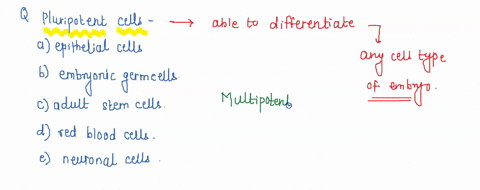 Q Pluripotent cells - → able to differentiate
any cell type
of embryo.
a) epithelial cells
b) embryonic germcells.
c) adult stem cells.
d) red blood cells.
e) neuronal cells.
Multipotent